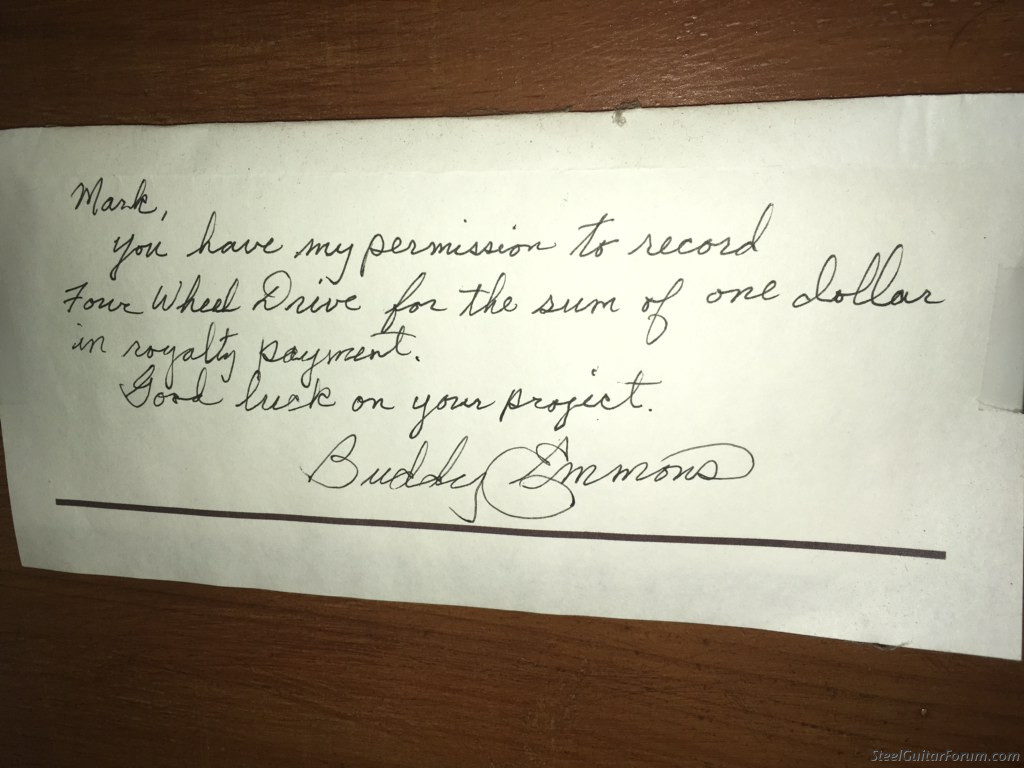 Mark,
You have my permission to record
Four Wheel Drive for the sum of one dollar
in royalty payment.
Good luck on your project.
Buddy Emmons
SteelGuitarForum.com